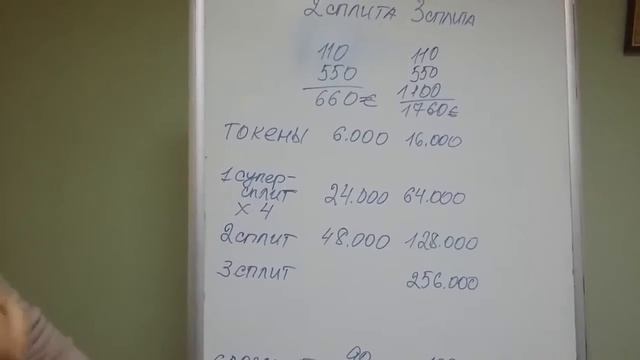 2 сплита 3 сплита
110 110
550 550
660€ 1100
1760€
токены 6.000 16.000
1 супер-
сплит 24.000 64.000
x 4
2 сплит 48.000 128.000
3 сплит 256.000